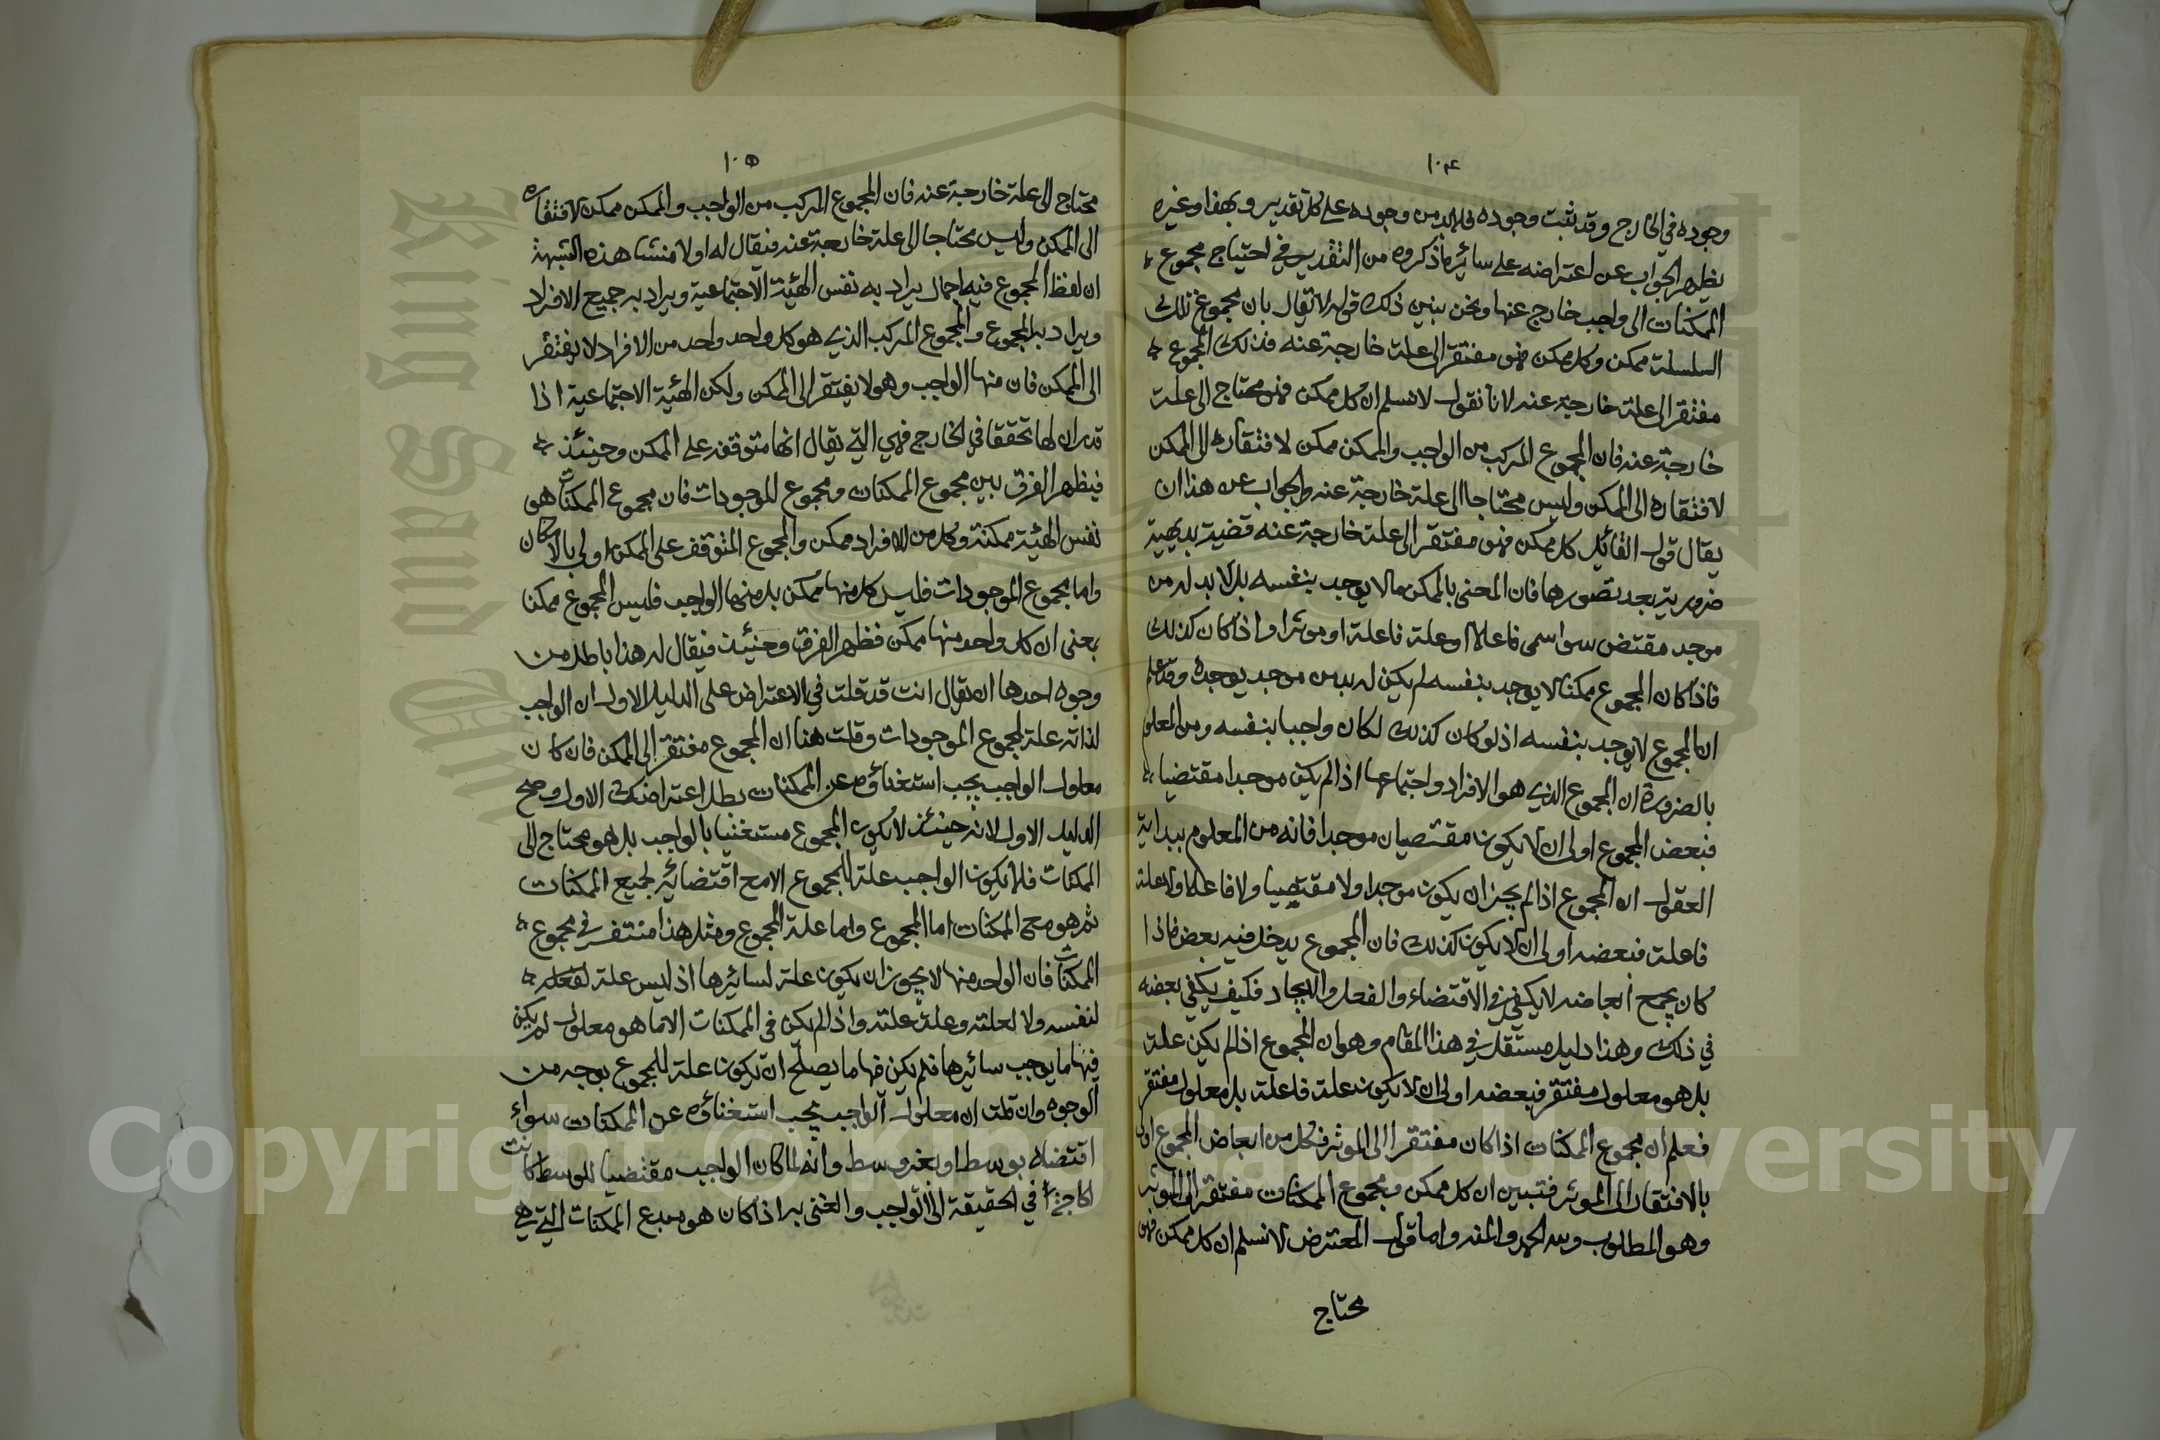 ١٠٤
وجوده في الخارج وقد ثبت وجوده فلا بد من وجوده على كل تقدير وبهذا وغيره
يظهر الجواب عن اعتراضه على سائر ما ذكروه من التقدير في احتياج مجموع
الممكنات الى واجب خارج عنها ونحن نبين ذلك قوله لا يقال بان مجموع تلك
السلسلة ممكن وكل ممكن فهو مفتقر الى علة خارجة عنه فذلك المجموع
مفتقر الى علة خارجة عنه لانا نقول لا نسلم ان كل ممكن فهو محتاج الى علة
خارجة عنه فان المجموع المركب من الواجب والممكن ممكن لافتقاره الى الممكن
لافتقاره الى الممكن وليس محتاجا الى علة خارجة عنه والجواب عن هذا ان
يقال قول القائل كل ممكن فهو مفتقر الى علة خارجة عنه قضية بديهية
ضرورية بعد تصورها فان المعنى بالممكن مالا يوجد بنفسه بل لا بد له من
موجد مقتض سوا سمى فاعلا او علة فاعلة او موثرا واذا كان كذلك
فاذا كان المجموع ممكنا لا يوجد بنفسه لم يكن له بد من موجد يوجده وقد علم
ان المجموع لا يوجد بنفسه اذ لو كان كذلك لكان واجبا بنفسه ومن المعلوم
بالضرورة ان المجموع الذي هو الافراد واجتماعها اذا لم يكن موجدا مقتضيا
فبعض المجموع اولى ان لا يكون مقتضيا موجدا فانه من المعلوم ببداية
العقول ان المجموع اذا لم يجز ان يكون موجدا ولا مقتضيا ولا فاعلا ولا علة
فاعلة فبعضه اولى ان لا يكون كذلك فان المجموع يدخل فيه بعض فاذا
كان بجمع ابعاضه لا يكفي في الاقتضاء والفعل والايجاد فكيف يكفي بعضه
في ذلك وهذا دليل مستقل في هذا المقام وهو ان المجموع اذا لم يكن علة
بل هو معلول مفتقر فبعضه اولى ان لا يكون علة فاعلة بل معلول مفتقر
فعلم ان مجموع الممكنات اذا كان مفتقرا الى الموثر فكل من ابعاض المجموع اولى
بالافتقار الى الموثر فتبين ان كل ممكن ومجموع الممكنات مفتقر الى الموثر
وهو المطلوب ولله الحمد والمنه واما قول المعترض لا نسلم ان كل ممكن فهو
محتاج
١٠٥
محتاج الى علة خارجة عنه فان المجموع المركب من الواجب والممكن ممكن لافتقاره
الى الممكن وليس محتاجا الى علة خارجة عنه فيقال له اولا منشا هذه الشبهة
ان لفظ المجموع فيه اجمال يراد به نفس الهيئة الاجتماعية ويراد به جميع الافراد
ويراد به المجموع والمجموع المركب الذي هو كل واحد واحد من الافراد لا يفتقر
الى الممكن فان منها الواجب وهو لا يفتقر الى الممكن ولكن الهيئة الاجتماعية اذا
قدر ان لها تحققا في الخارج فهي التي يقال انها متوقفه على الممكن وحينئذ
فيظهر الفرق بين مجموع الممكنات ومجموع الموجودات فان مجموع الممكنات هو
نفس الهيئة ممكنة وكل من الافراد ممكن والمجموع المتوقف على الممكن اولى بالامكان
واما مجموع الموجودات فليس كل منها ممكن بل منها الواجب فليس المجموع ممكنا
بمعنى ان كل واحد منها ممكن فظهر الفرق وحينئذ فيقال له هذا باطل من
وجوه احدها ان يقال انت قد قلت في الاعتراض على الدليل الاول ان الواجب
لذاته علة لمجموع الموجودات وقلت هنا ان المجموع مفتقر الى الممكن فان كان
معلول الواجب يجب استغناؤه عن الممكنات بطل اعتراضك الاول وصح
الدليل الاول لانه حينئذ لا يكون المجموع مستغنيا بالواجب بل هو محتاج الى
الممكنات فلا يكون الواجب علة للمجموع الا مع اقتضائه لجميع الممكنات
ثم هو مع الممكنات اما المجموع واما علة المجموع ومثل هذا منتف في مجموع
الممكنات فان الواحد منها لا يجوز ان يكون علة لسائرها اذ ليس علة
لنفسه ولا لعلته وعلة علته واذا لم يكن في الممكنات الا ما هو معلول لم يكن
فيها ما يوجب سائرها فلم يكن فيها ما يصلح ان يكون علة للمجموع بوجه من
الوجوه وان قلت ان معلول الواجب يجب استغناؤه عن الممكنات سواء
اقتضاه بوسط او بغير وسط وانه لما كان الواجب مقتضيا للوسط كانت
الحاجة في الحقيقة الى الواجب والغنى به اذا كان هو مبدع الممكنات التي هي
Copyright © King Saud University
King Saud University